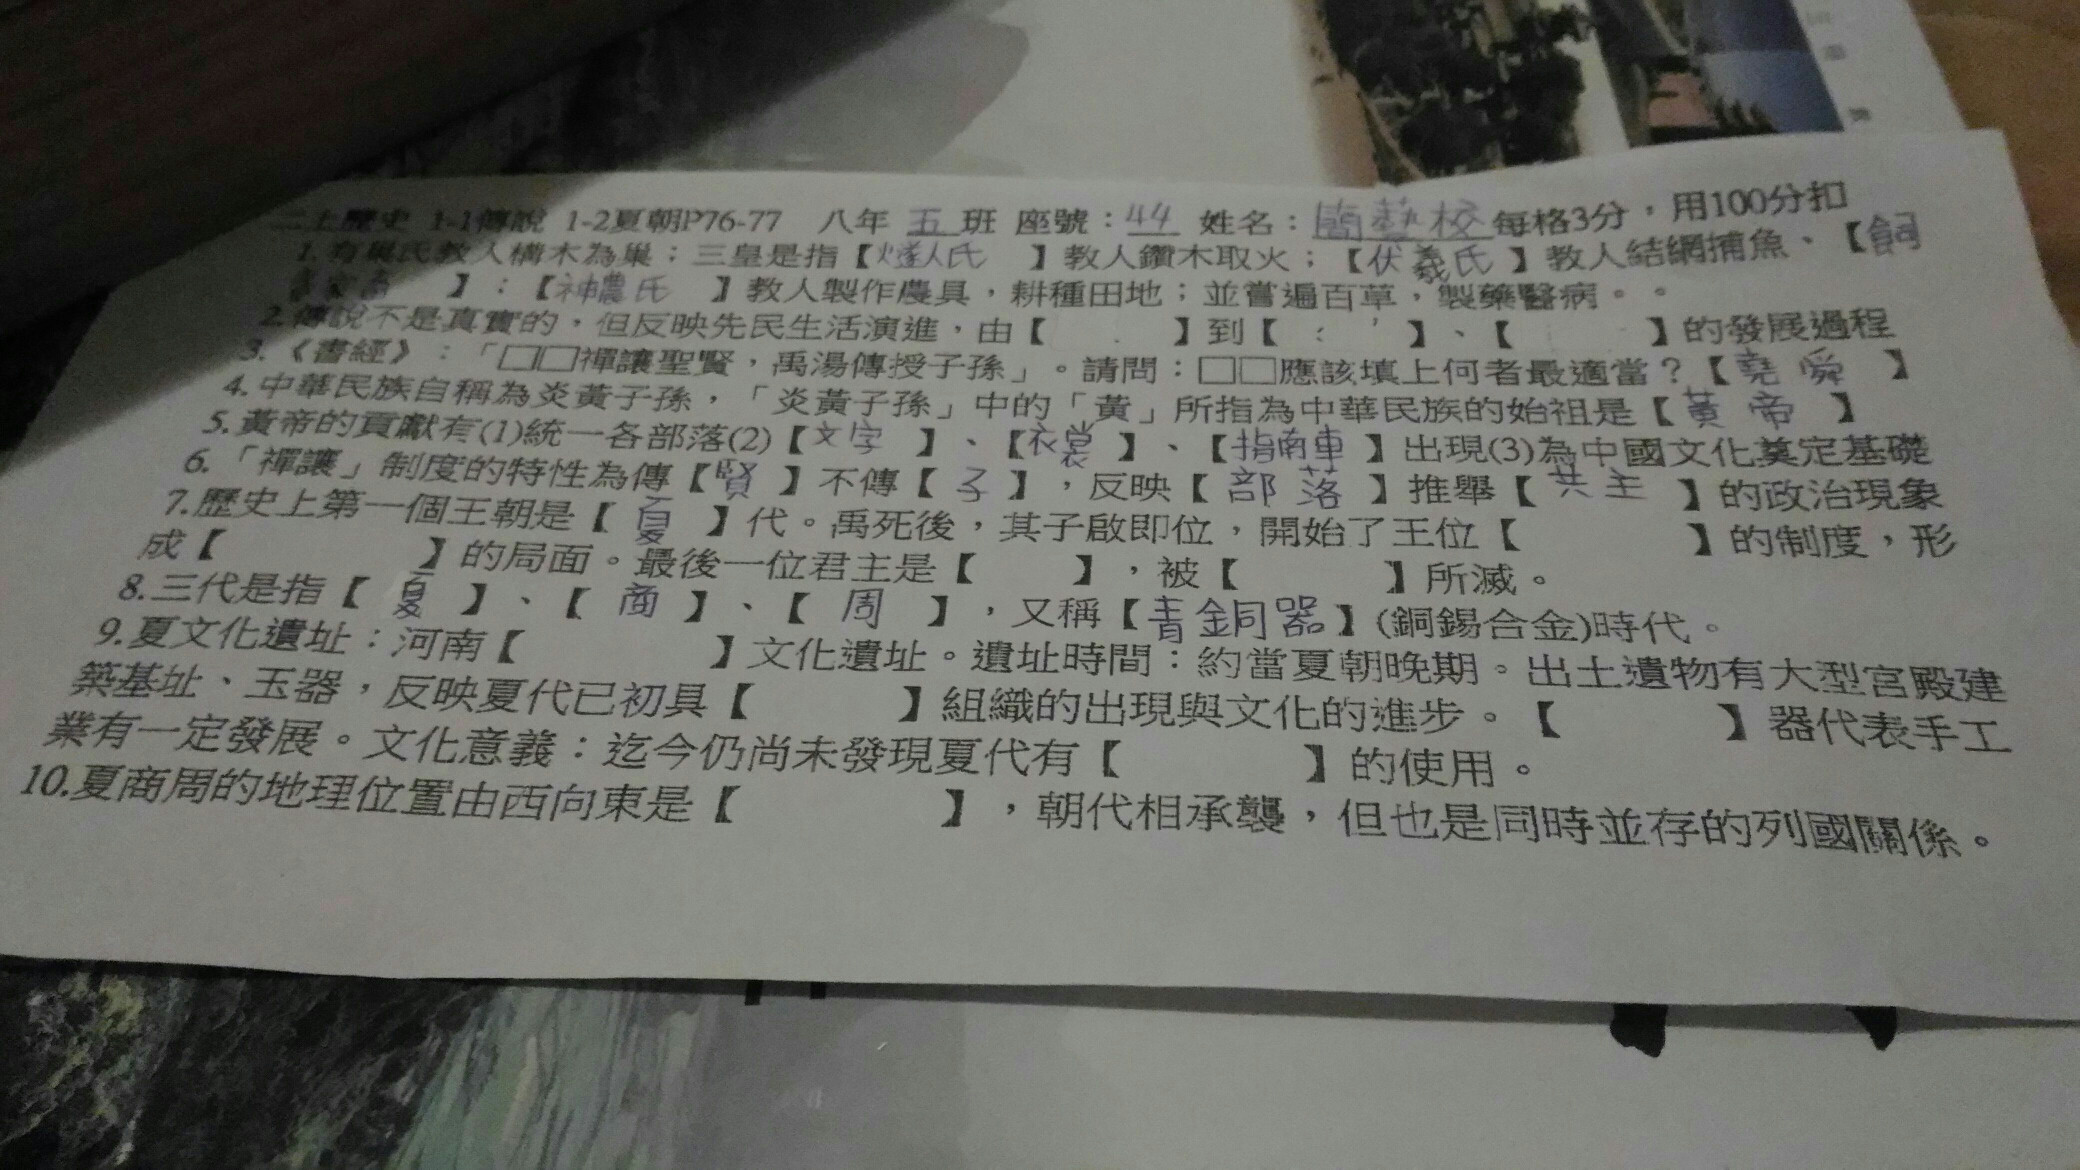 二上歷史 1-1傳說 1-2夏朝P76-77 八年 五 班 座號：44 姓名：簡藝校 每格3分，用100分扣
1.有巢氏教人構木為巢；三皇是指【燧人氏】教人鑽木取火；【伏羲氏】教人結網捕魚、【飼
養家畜】；【神農氏】教人製作農具，耕種田地；並嘗遍百草，製藥醫病。。
2.傳說不是真實的，但反映先民生活演進，由【 】到【 】、【 】的發展過程
3.《書經》：「□□禪讓聖賢，禹湯傳授子孫」。請問：□□應該填上何者最適當？【堯舜】
4.中華民族自稱為炎黃子孫，「炎黃子孫」中的「黃」所指為中華民族的始祖是【黃帝】
5.黃帝的貢獻有(1)統一各部落(2)【文字】、【衣裳】、【指南車】出現(3)為中國文化奠定基礎
6.「禪讓」制度的特性為傳【賢】不傳【子】，反映【部落】推舉【共主】的政治現象
7.歷史上第一個王朝是【夏】代。禹死後，其子啟即位，開始了王位【 】的制度，形
成【 】的局面。最後一位君主是【 】，被【 】所滅。
8.三代是指【夏】、【商】、【周】，又稱【青銅器】(銅錫合金)時代。
9.夏文化遺址：河南【 】文化遺址。遺址時間：約當夏朝晚期。出土遺物有大型宮殿建
築基址、玉器，反映夏代已初具【 】組織的出現與文化的進步。【 】器代表手工
業有一定發展。文化意義：迄今仍尚未發現夏代有【 】的使用。
10.夏商周的地理位置由西向東是【 】，朝代相承襲，但也是同時並存的列國關係。